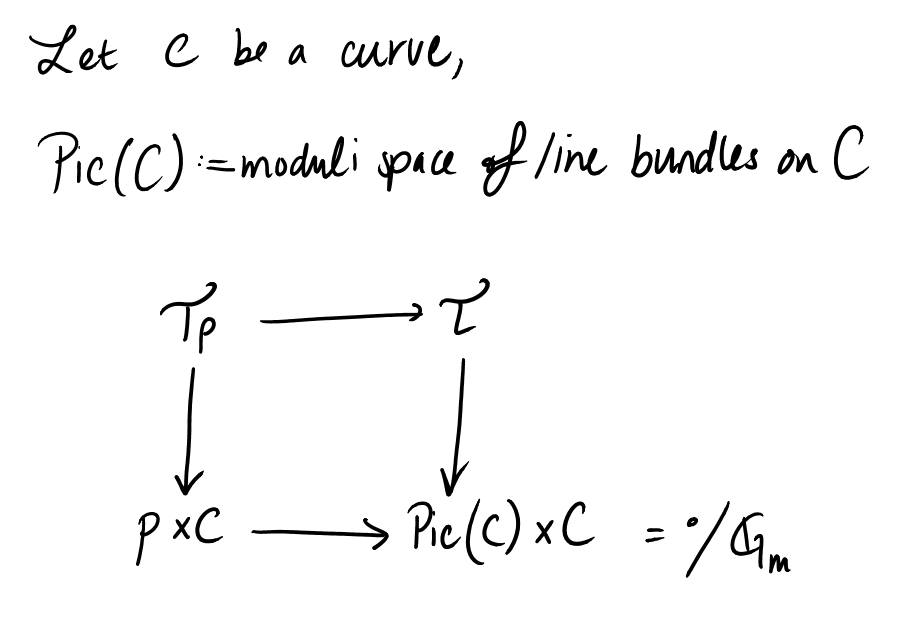 Let C be a curve,
Pic(C) := moduli space of line bundles on C
𝒯ₚ → 𝒯
p × C → Pic(C) × C = •/𝔾ₘ